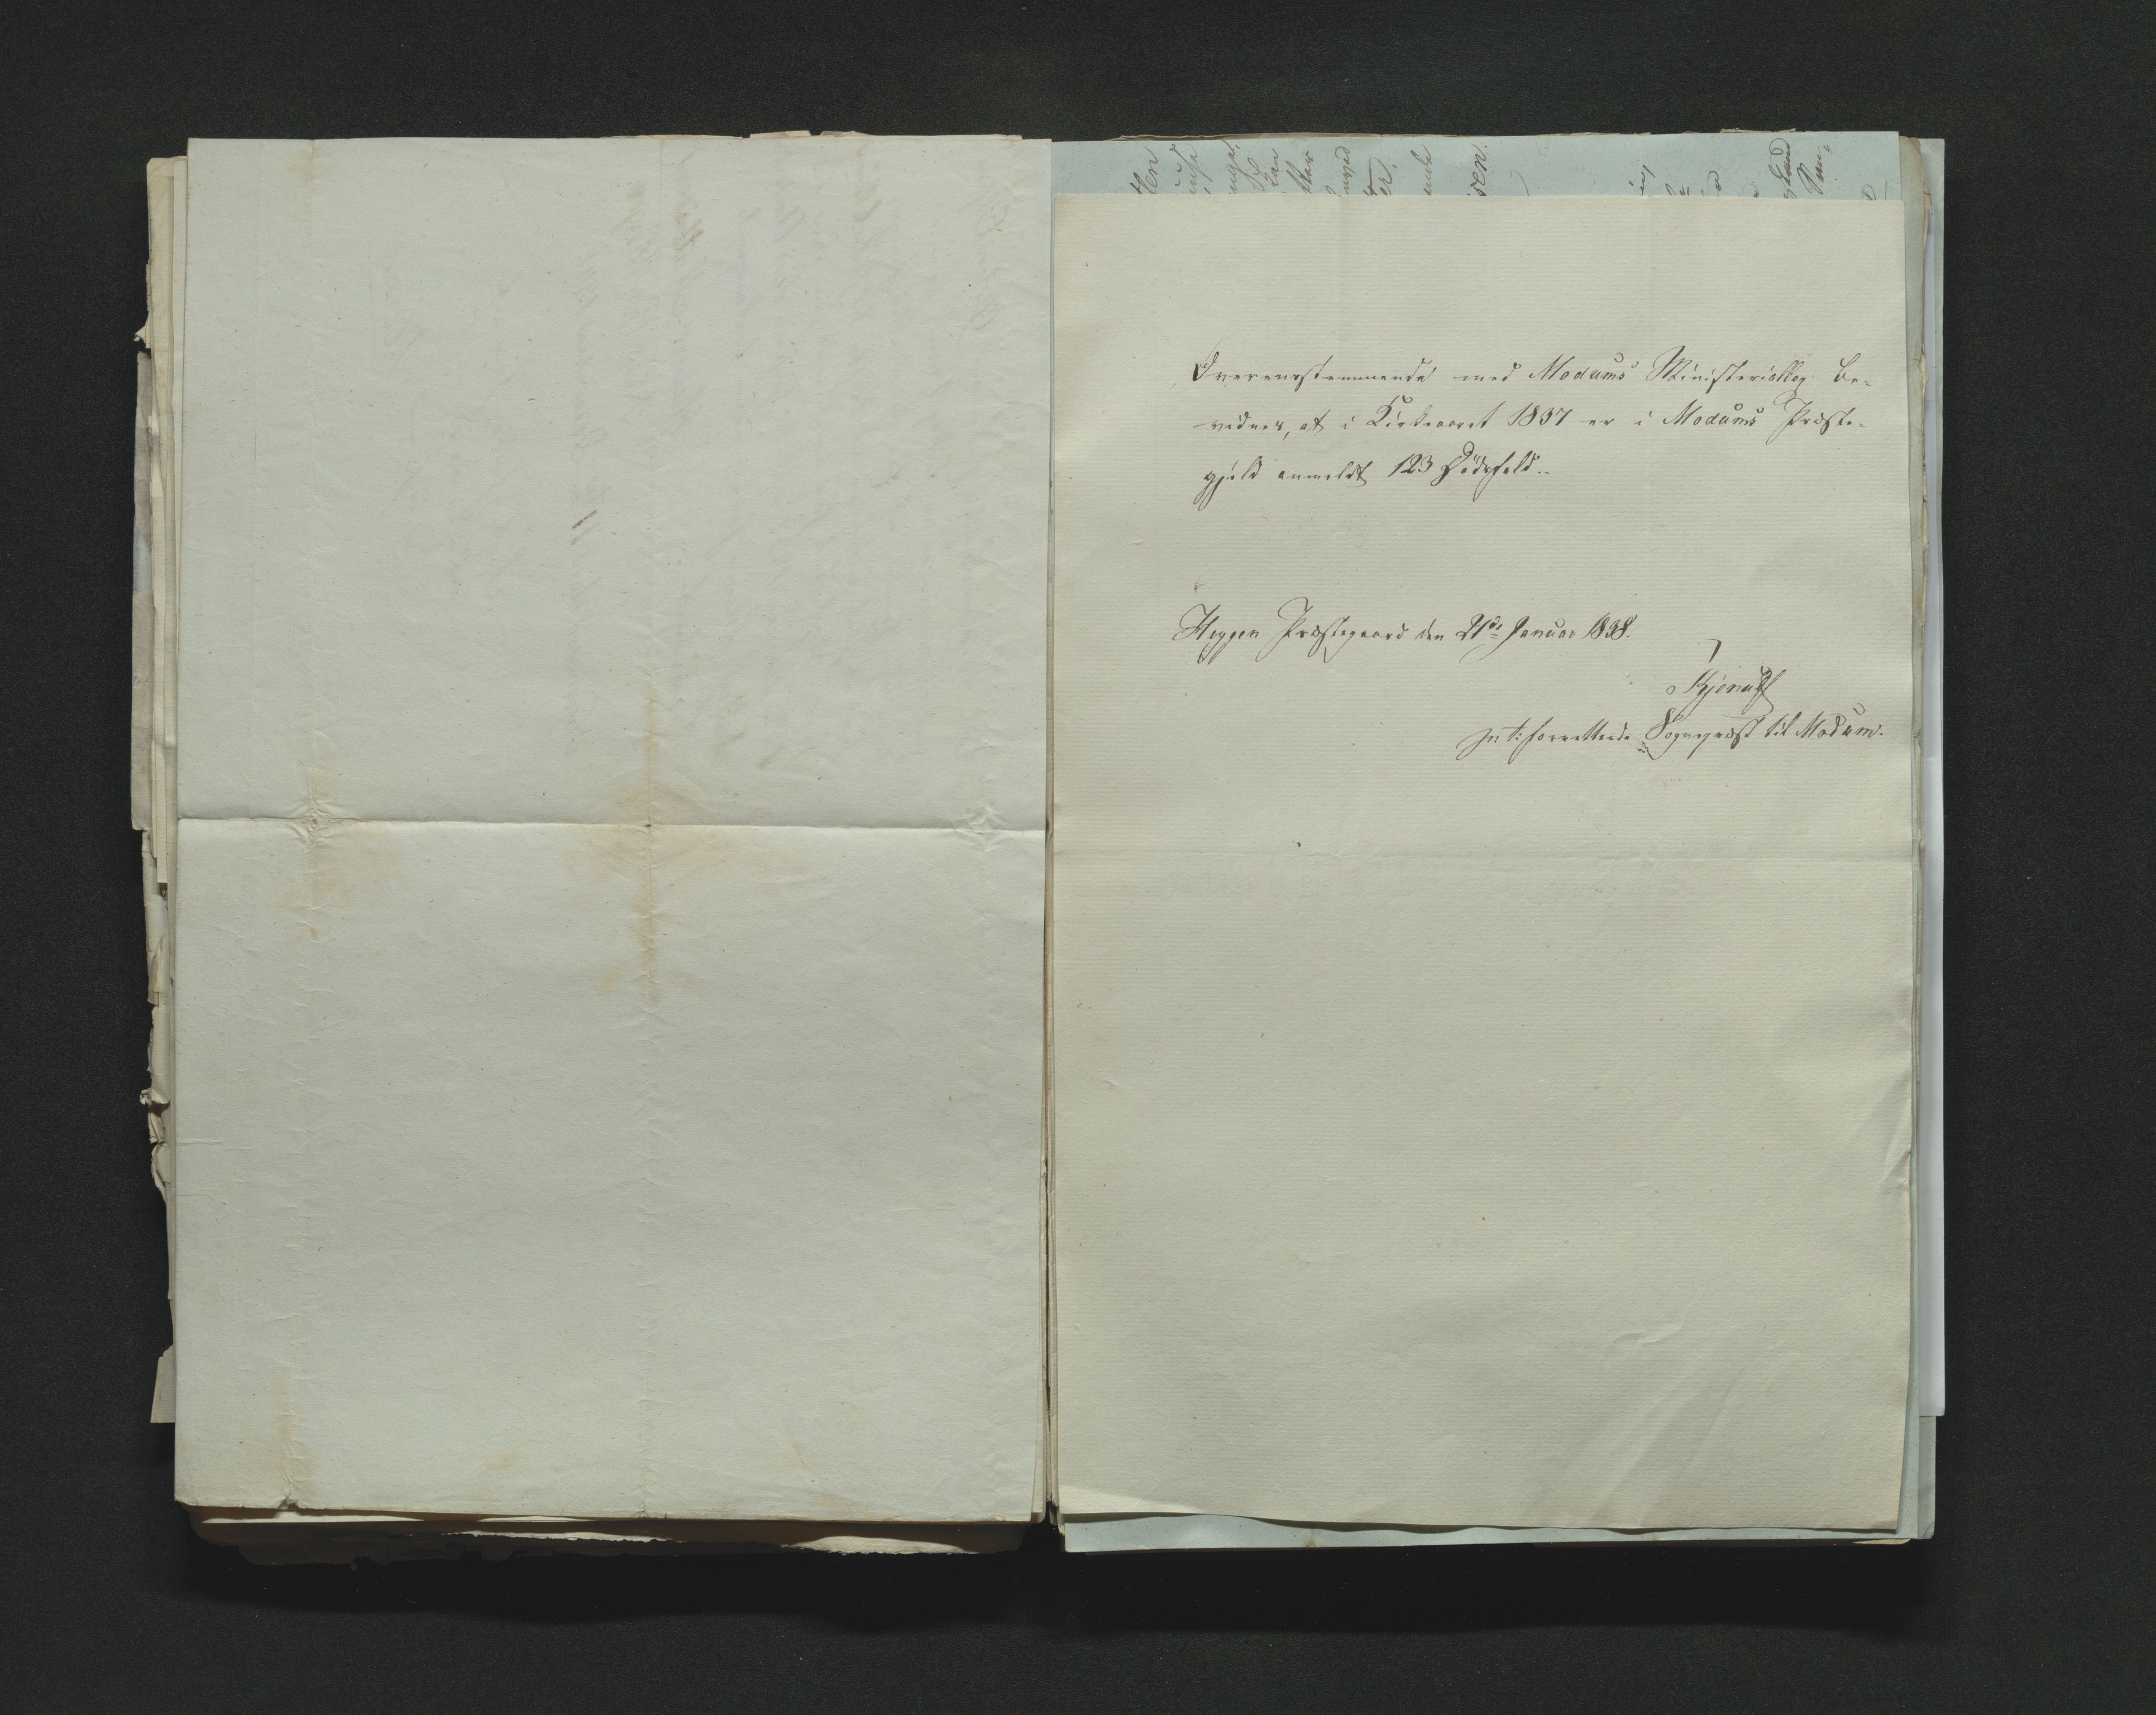 Overensstemmende med Modums Ministerialbog be-
vidnes, at i Kirkeaaret 1837 er i Modums Præste-
gjeld anmeldt 123 Dødsfald.
Heggen Præstegaard den 21de Januar 1838.
p: t: forrettende Sognepræst til Modum.